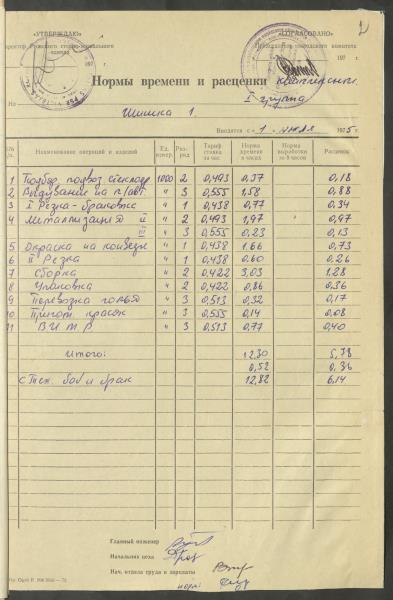 «УТВЕРЖДАЮ»
«СОГЛАСОВАНО»
197 г.
197 г.
Нормы времени и расценки
I группа
На Шишка 1
Вводятся с «1» 1975 г.
№№ п. Наименование операций и изделий Ед. измер. Раз-ряд Тариф ставка за час. Норма времени в часах Норма выработки за 8 часов Расценки
1 Подбор, подвоз 1000 2 0,493 0,37 0,18
2 Выдувание на п/авт " 3 0,555 1,58 0,88
3 I Резка-браковка " 1 0,438 0,77 0,34
4 Металлизация II " 2 0,493 1,97 0,97
III " 3 0,555 0,23 0,13
5 Окраска на конвейере " 1 0,438 1.66 0,73
6 II Резка " 1 0,438 0.60 0,26
7 Сборка " 2 0,422 3,03 1.28
8 Упаковка " 2 0,422 0,86 0,36
9 Перевозка " 3 0,513 0,32 0,17
10 Пригот. красок " 3 0,555 0,14 0,08
11 " 3 0,513 0,77 0,40
Итого: 12,30 5,78
0,52 0,36
с Тех. боб и брак 12,82 6,14
Главный инженер
Начальник цеха
Нач. отдела труда и зарплаты